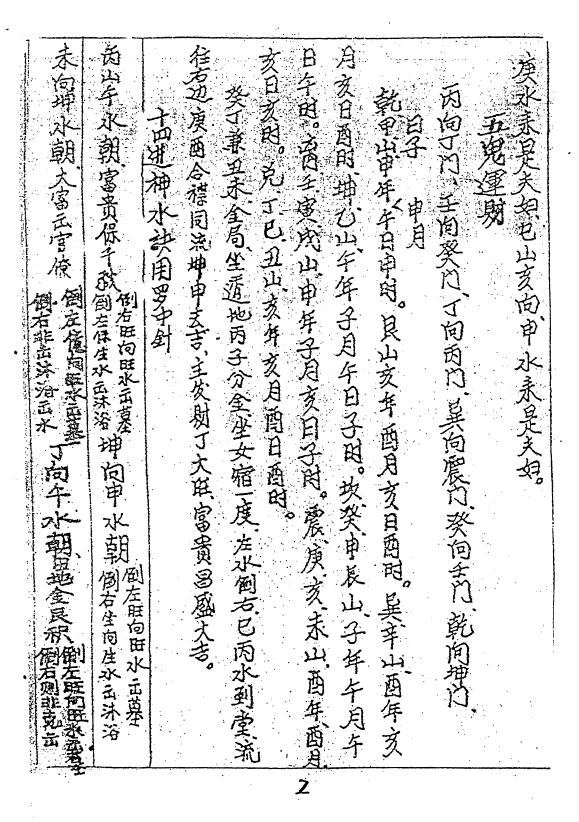 庚水來是夫妇。巳山亥向、申水來是夫妇。
五鬼運財
丙向丁门、壬向癸门、丁向丙门、巽向震门、癸向壬门、乾向坤门、
日子 申月
乾甲山、申年午日申时。艮山亥年酉月亥日酉时。巽辛山、酉年亥
月亥日酉时、坤乙山、午年子月午日子时。坎癸申辰山、子年午月午
日午时。丙壬寅戌山、申年子月亥日子时。震庚亥未山、酉年酉月
亥日亥时。兑丁巳丑山、亥年亥月酉日酉时。
癸丁兼丑未全局、坐遁地丙子分金、坐女宿一度、左水倒右、巳丙水到堂、流
往右边庚酉合襟同流坤申大吉、主发财丁大旺、富貴昌盛大吉。
十四進神水訣用罗中針
丙山午水朝富貴保千秋
倒右旺向旺水出墓
倒左保生水出沐浴
坤向申水朝
倒左旺向旺水出墓
倒右生向生水出沐浴
未向坤水朝、大富出官僚
倒左 向旺水出墓
倒右非出沐浴出水
丁向午水朝、田地金艮积
倒左旺向旺水出墓
倒右则非 出
2